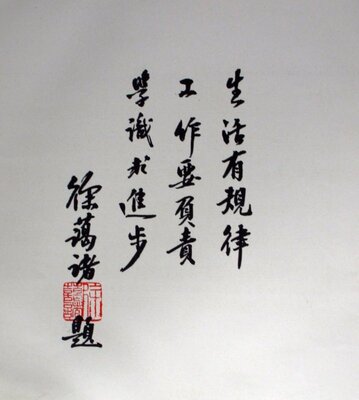 生活有規律
工作要負責
學識求進步
徐蔼諸題